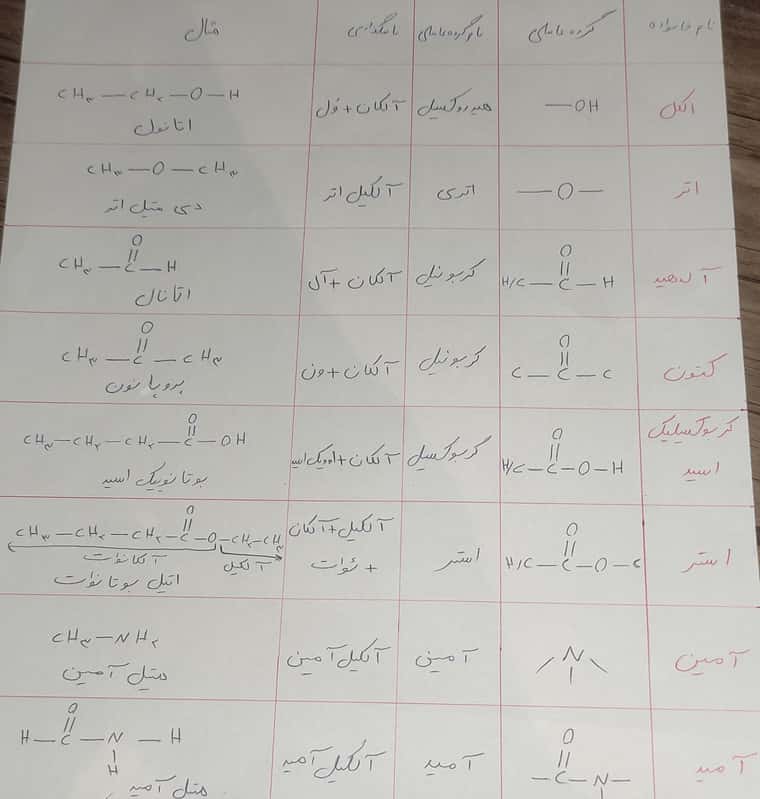 نام خانواده	گروه عاملی	نام گروه عاملی	نامگذاری	مثال
الکل	—OH	هیدروکسیل	آلکان + ول	CH۳—CH۲—O—H
اتانول
اتر	—O—	اتری	آلکیل اتر	CH۳—O—CH۳
دی متیل اتر
آلدهید	H/C—C(=O)—H	کربونیل	آلکان + آل	CH۳—C(=O)—H
اتانال
کتون	C—C(=O)—C	کربونیل	آلکان + ون	CH۳—C(=O)—CH۳
پروپانون
کربوکسیلیک اسید	H/C—C(=O)—O—H	کربوکسیل	آلکان + اوییک اسید	CH۳—CH۲—CH۲—C(=O)—OH
بوتانوییک اسید
استر	H/C—C(=O)—O—C	استر	آلکیل + آلکان + ئوات	CH۳—CH۲—CH۲—C(=O)—O—CH۲—CH۳
آلکانوات	آلکیل
اتیل بوتانوات
آمین	—N—	آمین	آلکیل آمین	CH۳—NH۲
متیل آمین
آمید	—C(=O)—N—	آمید	آلکیل آمید	H—C(=O)—N(H)—H
متل آمید